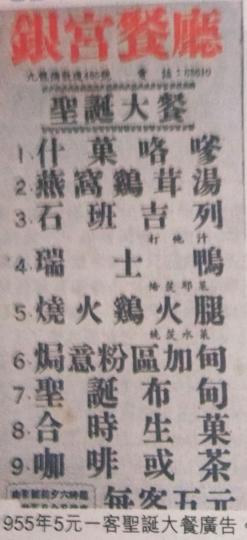 銀宮餐廳
九龍彌敦道480號 電話:68610
聖誕大餐
1. 什菓咯嗲
2. 燕窩鷄茸湯
3. 石班吉列
打他汁
4. 瑞士鴨
燴莢耶菜
5. 燒火鷄火腿
燒莢水菜
6. 焗意粉區加甸
7. 聖誕布甸
8. 合時生菓
9. 咖啡或茶
每客五元
955年5元一客聖誕大餐廣告